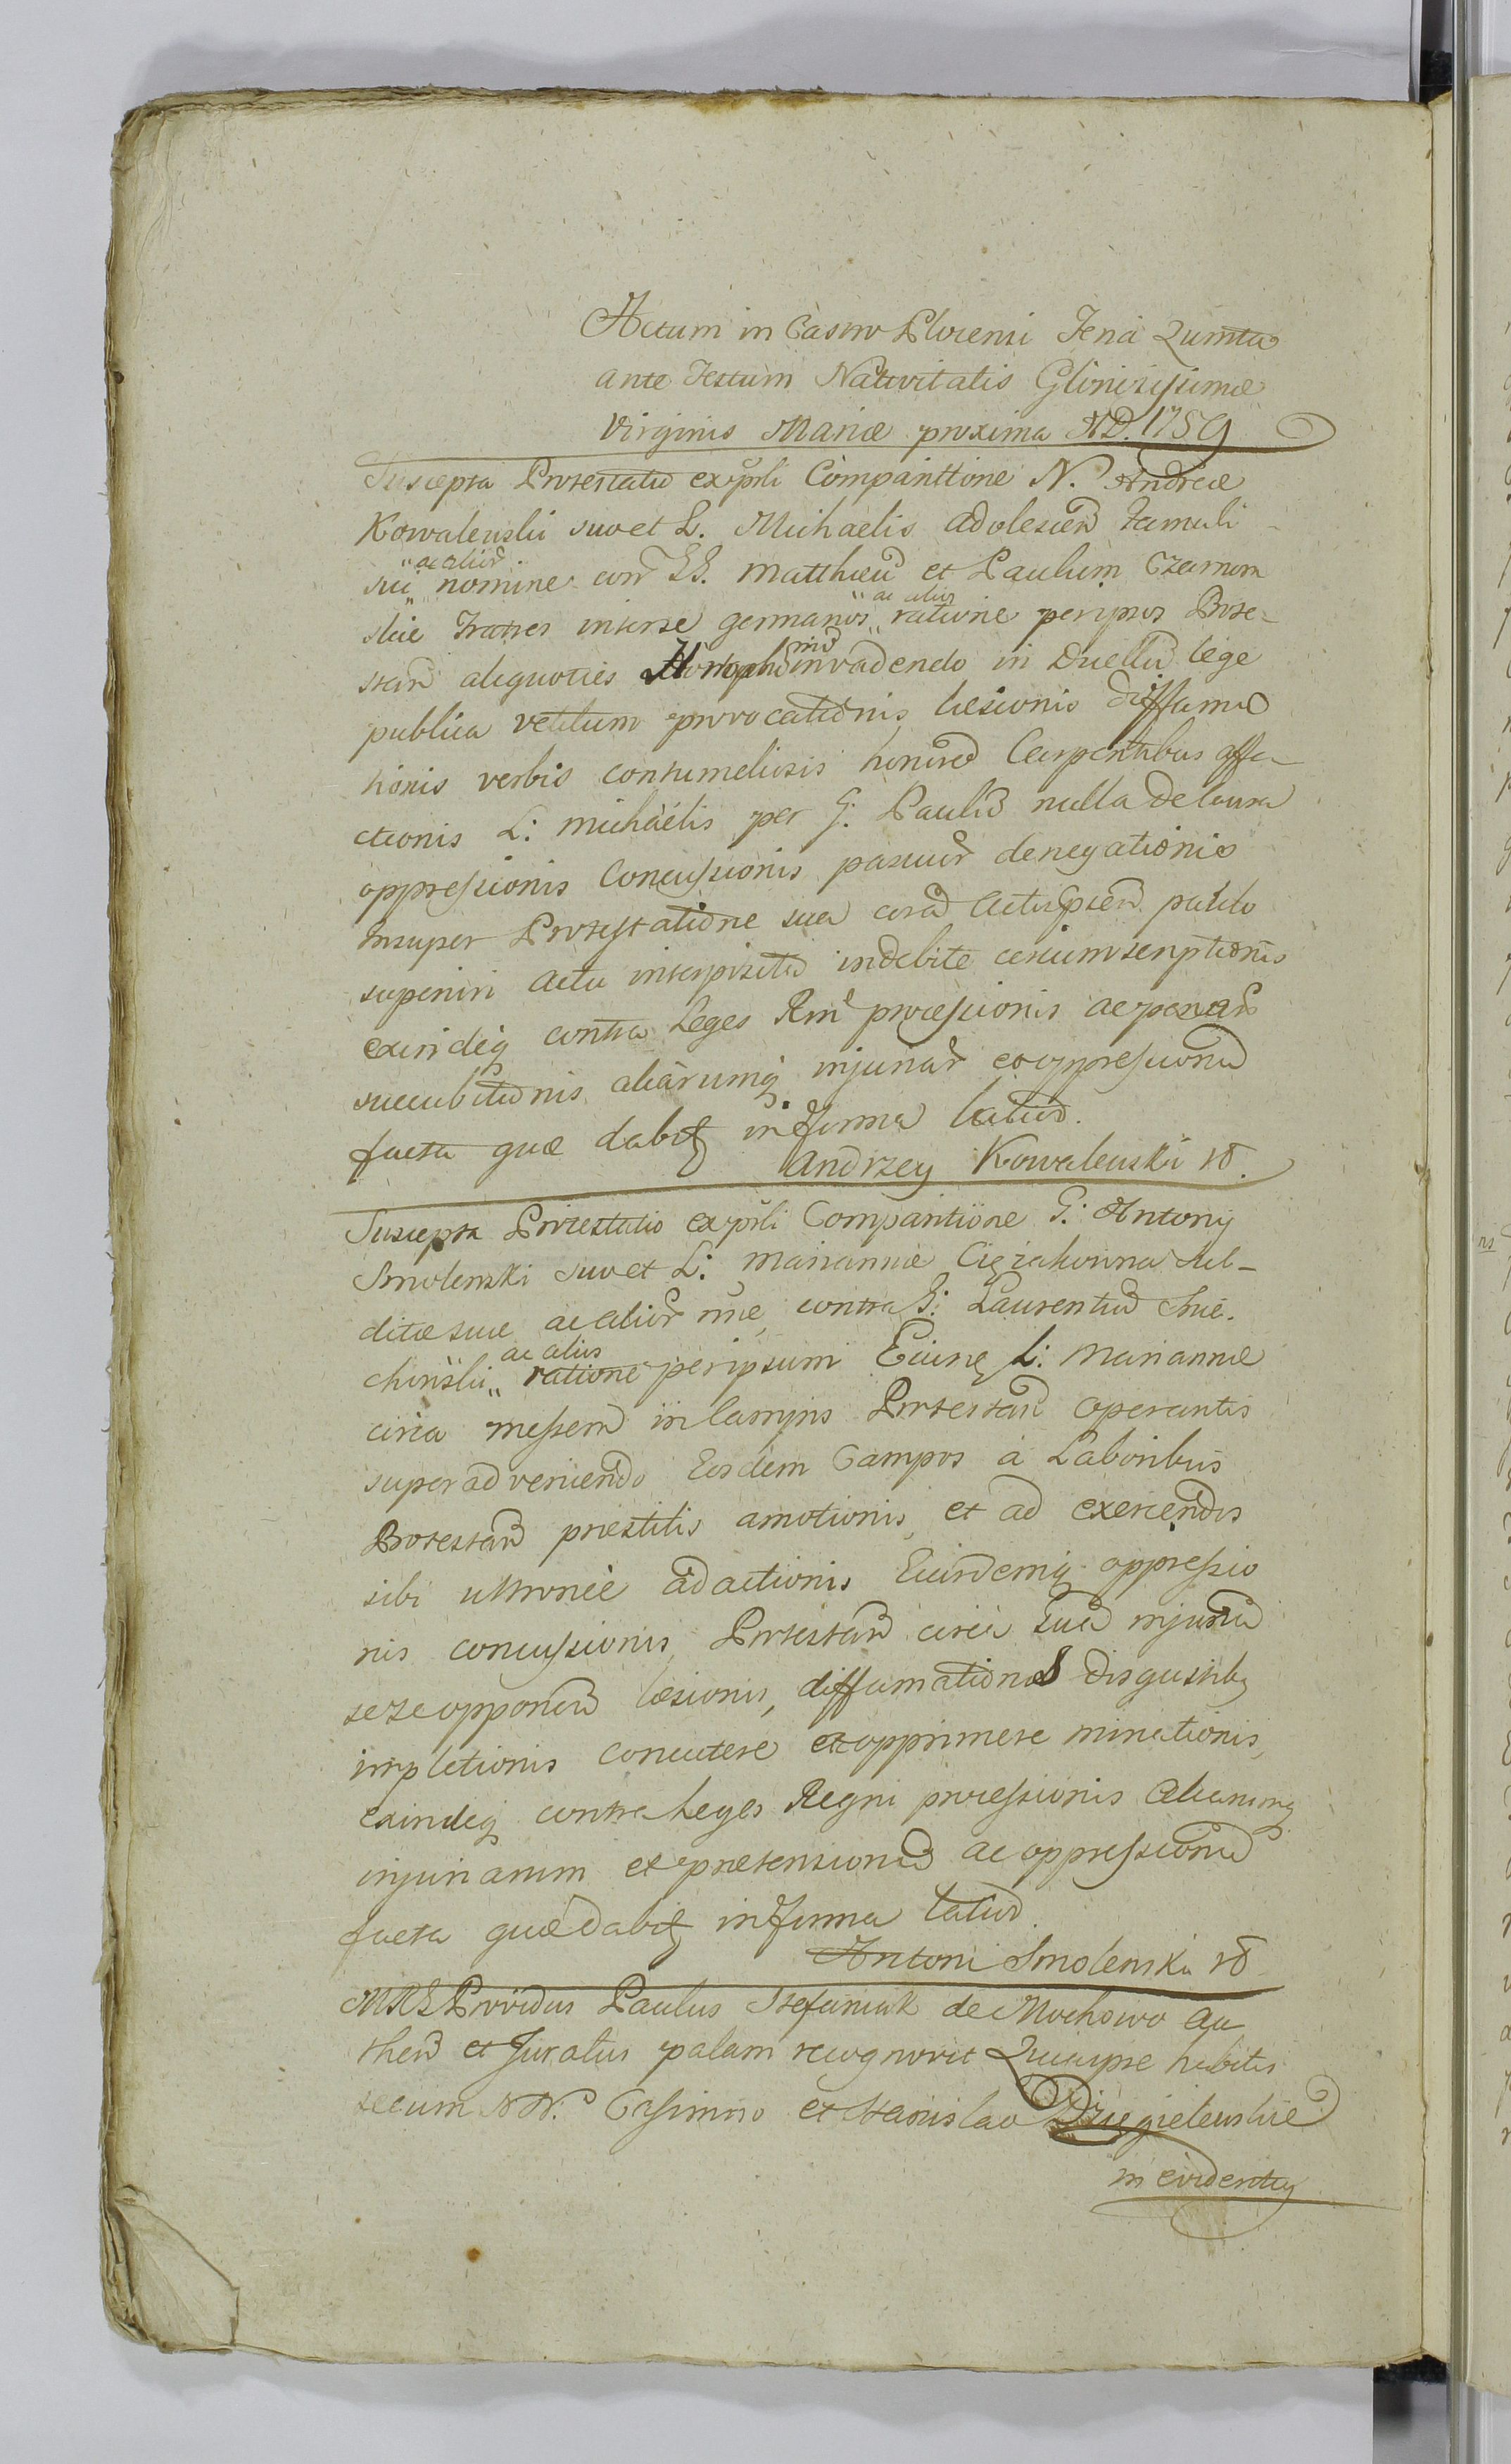 Actum in Castro Plocensi Feria Quinta
ante Festum Nativitatis Gloriosissimæ
Virginis Mariæ proxima AD. 1759
Suscepta Protestatio ex psli Comparittione N. Andreæ
Kowalewski suo et L. Michaelis adolescen famuli
sui "ac alior" nomine con GG. Matthæu et Paulum Czarnom
skie Fratres inter se germanos "ac alios" ratione per ipsos Prote-
stan aliquoties invadendo in Duellu lege
publica vetitum provocationis læsionis diffama
tionis verbis contumeliosis honore Carpentibus affe-
ctionis L: Michaelis per G: Paulu nulla de causa
oppressionis Concussionis pascuor denegationis
insuper Protestatione sua cora Actis psen paulo
superiori actu interposita indebite circumscriptionis
exindeq contra Leges Rni processionis ac penar
succubitionis aliarumq injuriar et oppressionu
facta quæ dabit in forma latiori.
Andrzey Kowalewski
Suscepta Protestatio ex psli Comparitione G: Antony
Smolenski suo et L: Mariannæ Sub-
ditæ suæ ac alior nne contra G: Laurentiu Sue-
chinski "ac alios" ratione per ipsum L: Mariannæ
circa messem in Campis Protestan operantis
superadveniendo Eosdem Campos a Laboribus
Protestan præstitis amotionis, et ad exercendos
sibi adactionis Eiusdemq oppressio
nis concussionis, Protestan circa sua injuria
sese opponen læsionis, diffamationis Disgustibq
impletionis concutere et opprimere minationis,
exindeq contra Leges Regni processionis aliarumq
injuriarum et prætensionu ac oppressionu
facta quæ dabit in forma latiori.
Antoni Smolenski
Providus Paulus Stefaniak de Mochowo au
then et Juratus palam recognovit Quia ipse habitis
secum NN. Casimiro et Stanislao
in evidentiq